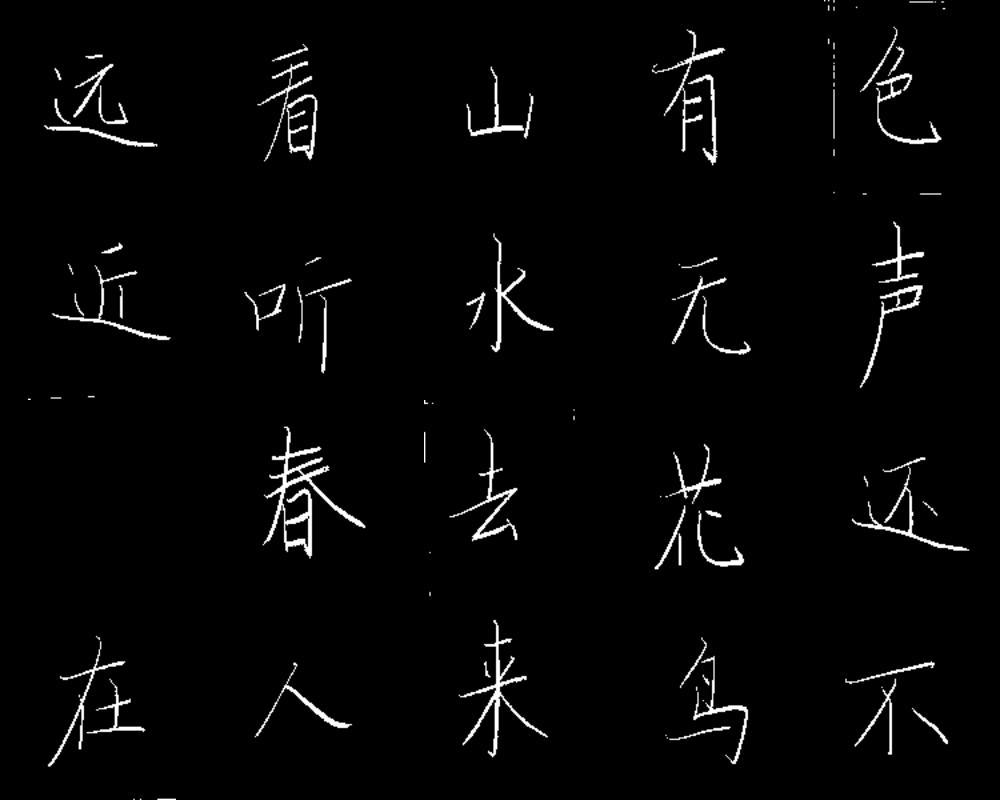 远看山有色
近听水无声
春去花还
在人来鸟不